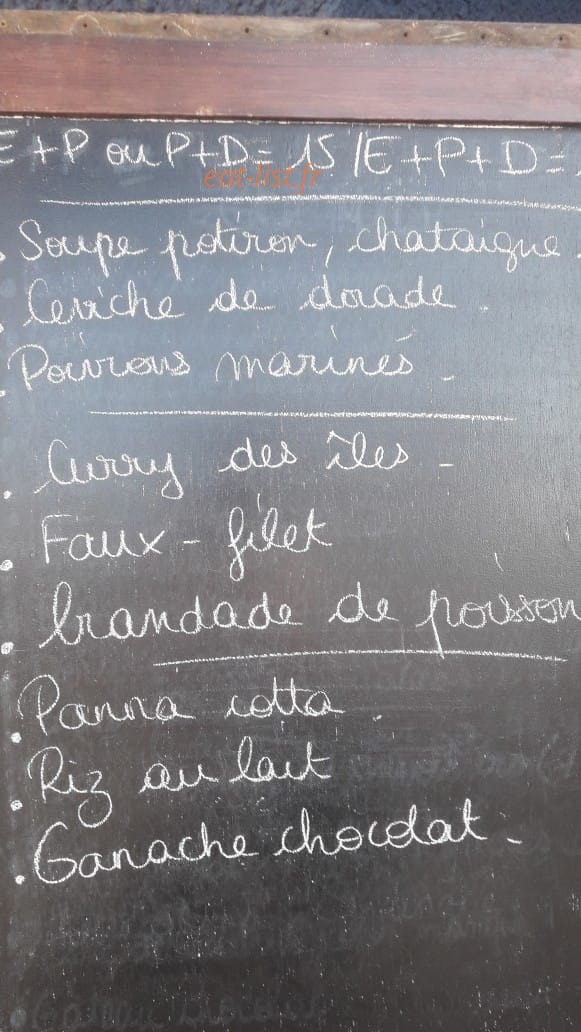 E+P ou P+D=15/E+P+D=
eat-list.fr
. Soupe potiron, chataigne.
. Ceviche de dorade.
. Poivrons marinés -
. Curry des îles -
. Faux-filet
. brandade de poisson
. Panna cotta.
. Riz au lait
. Ganache chocolat -